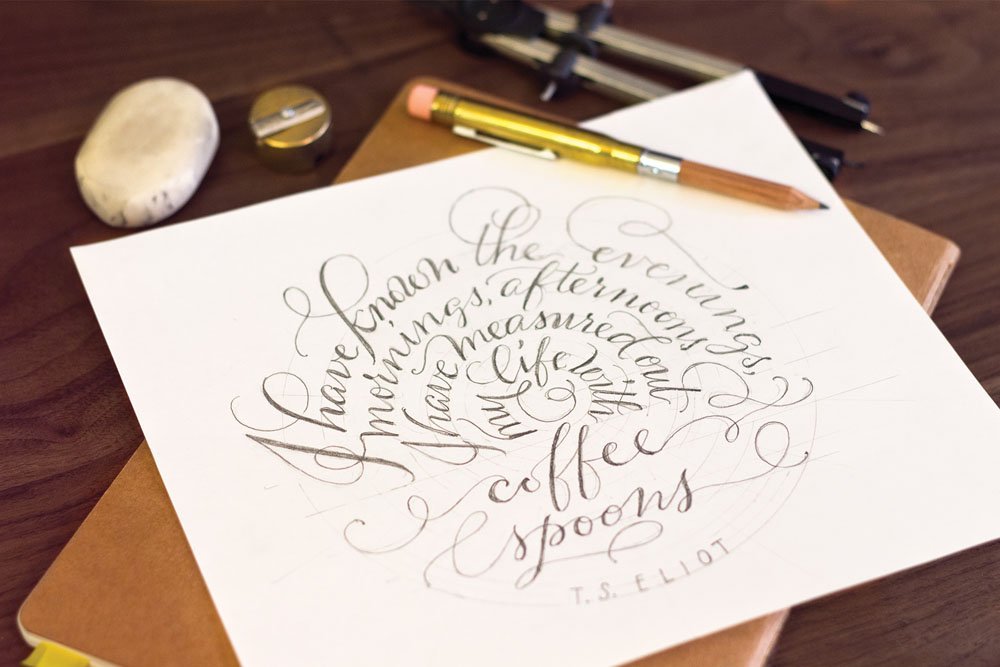 I have known the evenings,
mornings, afternoons
I have measured out
my life with
coffee
spoons
T. S. ELIOT